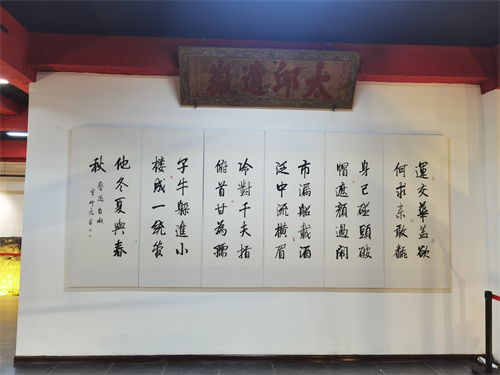 太邱遺
運交華蓋欲
何求未敢翻
身已碰頭破
帽遮顏過鬧
市漏船載酒
泛中流橫眉
冷對千夫指
俯首甘為孺
子牛躲進小
樓成一統管
他冬夏與春
秋
魯迅自嘲